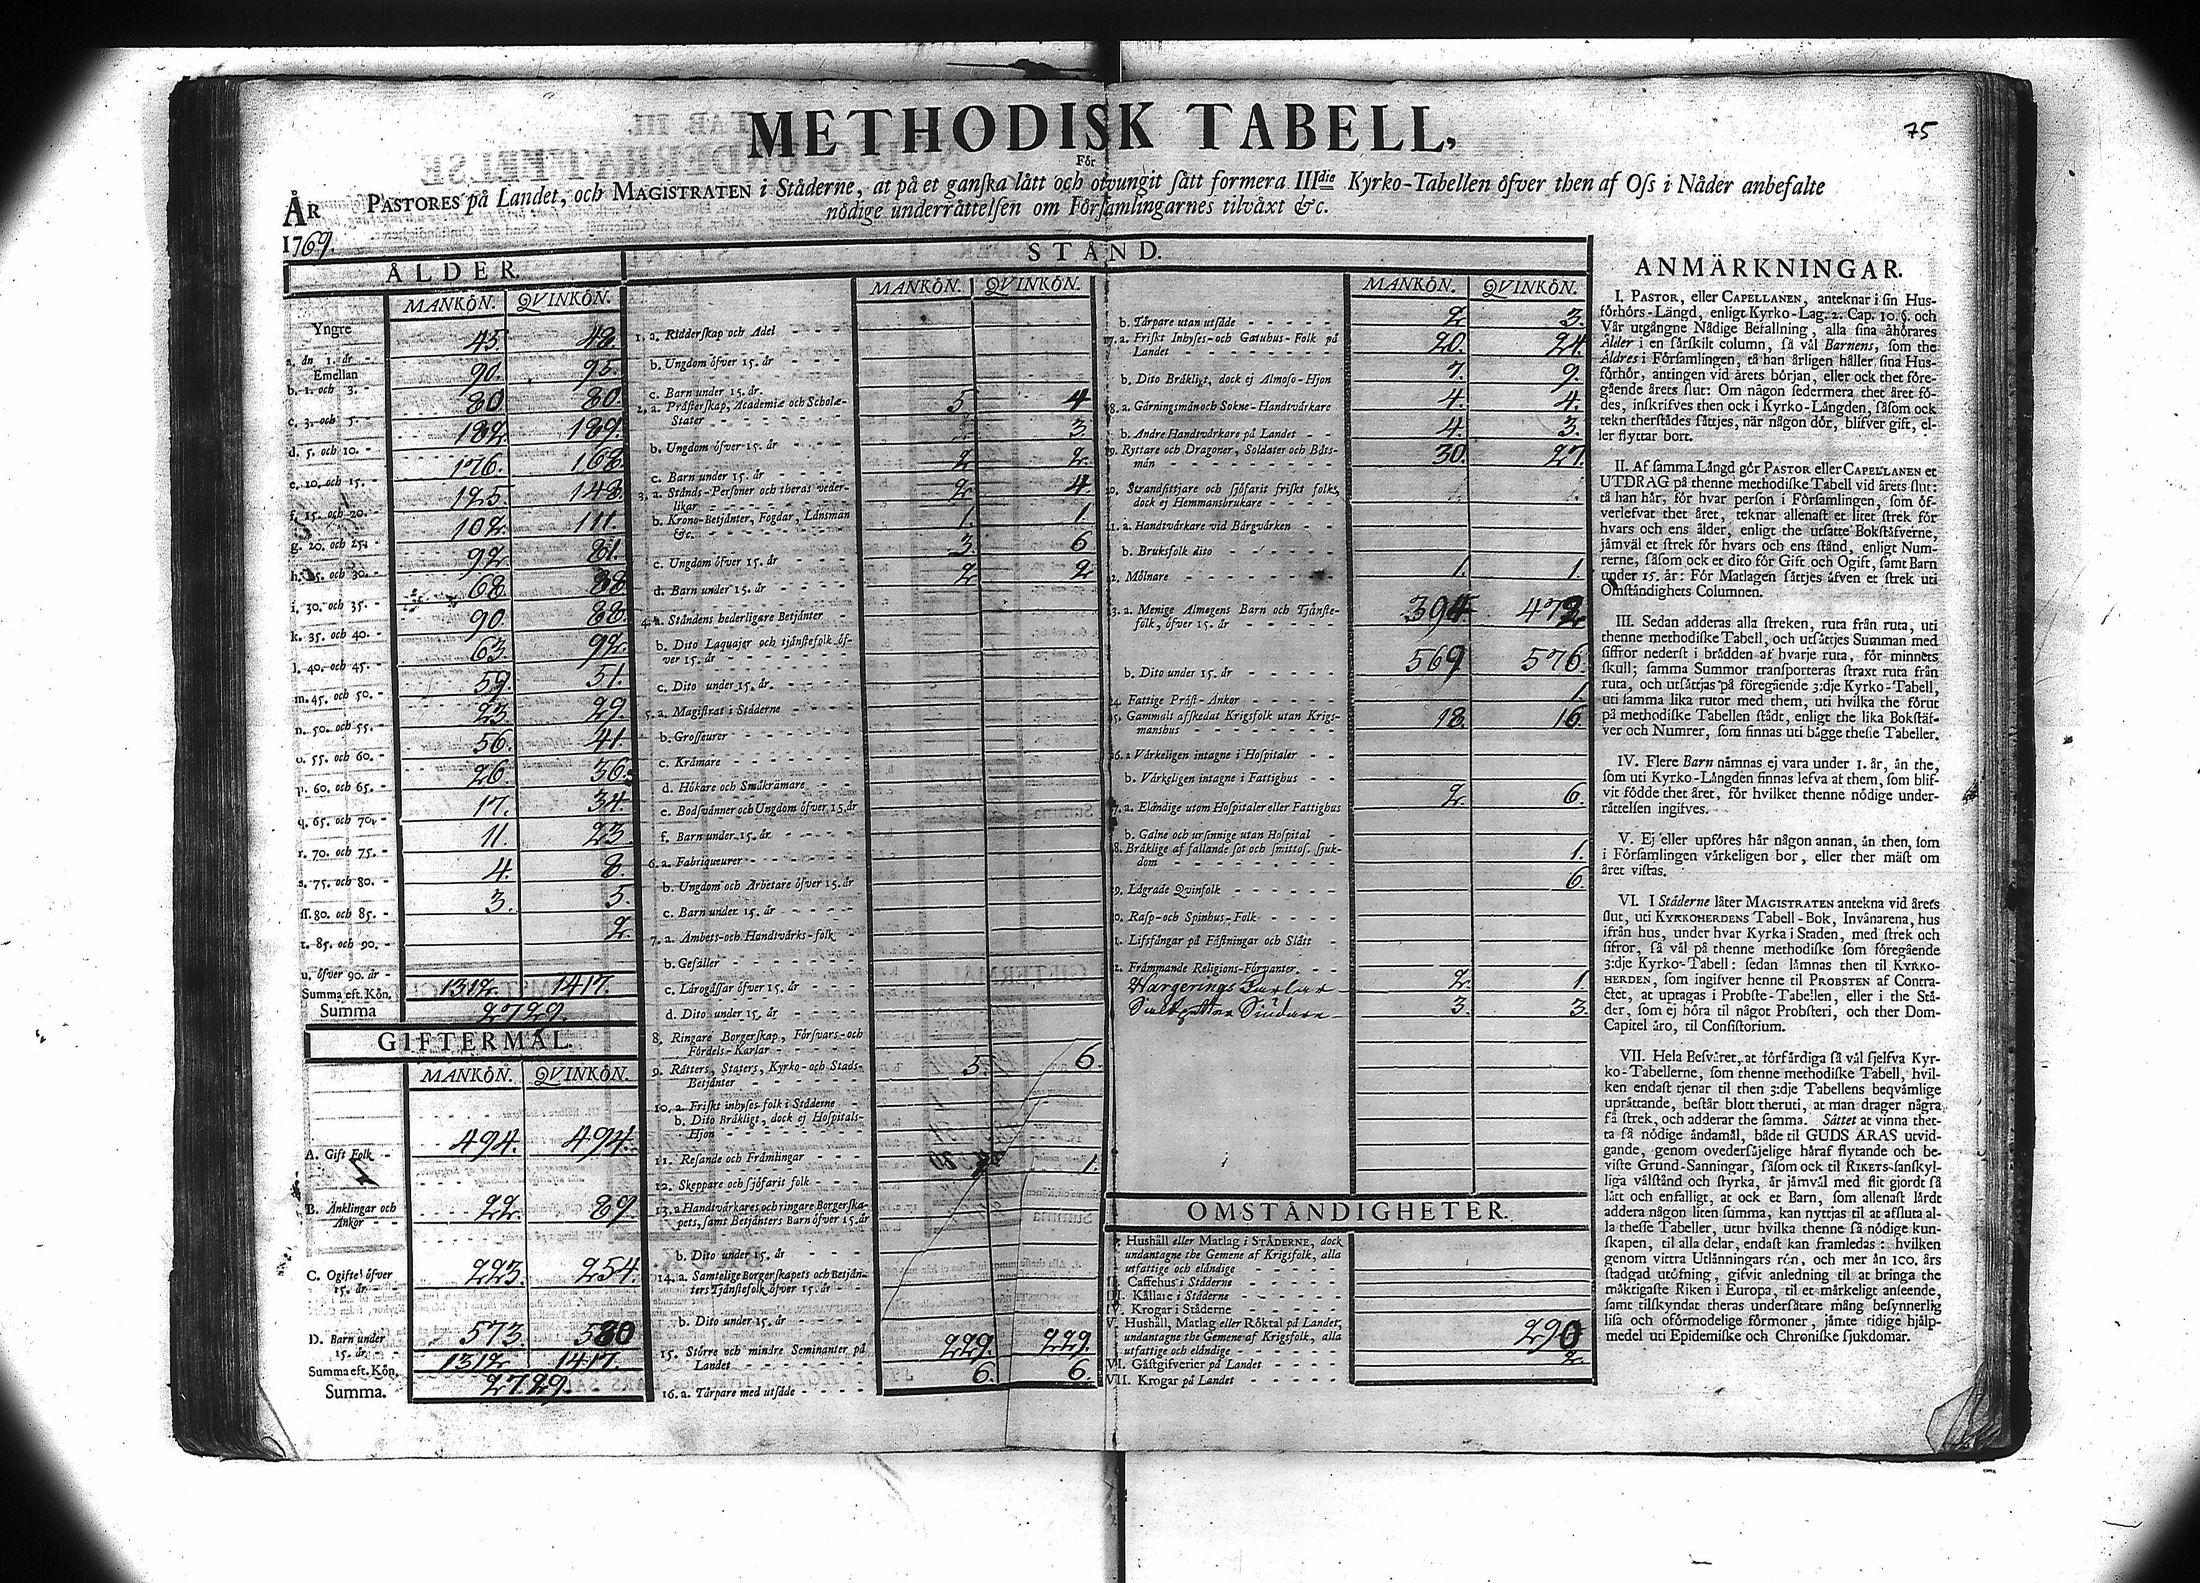 METHODISK TABELL,
75
För
PASTORES på Landet, och MAGISTRATEN i Ståderne, at på et ganska lått och otvungit sått formera IIIdie Kyrko-Tabellen öfver then af Oss i Nåder anbefalte
nödige underråttelsen om Församlingarnes tilvåxt &c.
ÅR
1769.
ÅLDER.
MANKÖN. QVINKÖN.
Yngre
a. ån 1. år - 45. 48.
Emellan
b. 1. och 3. - 90. 95.
c. 3. och 5. - 80 80.
d. 5. och 10. - 182. 189.
e. 10. och 15. - 176. 168.
f. 15. och 20. - 125. 148.
g. 20. och 25. 102. 111.
h. 25. och 30. - 92. 81.
i. 30. och 35. - 68. 88
k. 35. och 40. - 90. 88.
l. 40. och 45. - 63. 92.
m. 45. och 50. - 59. 51.
n. 50. och 55. - 23. 29.
o. 55. och 60. - 56. 41.
p. 60. och 65. - 26. 36.
q. 65. och 70. - 17. 34
r. 70. och 75. - 11. 23.
s. 75. och 80. - 4. 8.
ss. 80. och 85. - 3. 5.
t. 85. och 90. - 2.
u. öfver 90. år -
Summa eft. Kön. 1312. 1417.
Summa 2729.
GIFTERMÅL.
MANKÖN. QVINKÖN.
A. Gift Folk - 494. 494.
B. Änklingar och
Änkor - - 22. 89.
C. Ogifte öfver
15. år - - 223. 254.
D. Barn under
15. år - - 573. 580
Summa eft. Kön. 1312 1417.
Summa. 2729.
STÅND.
MANKÖN. QVINKÖN.
1. a. Ridderskap och Adel
b. Ungdom öfver 15. år
c. Barn under 15. år.
2. a. Pråsterskap, Academiæ och Scholæ-
Stater 5. 4
b. Ungdom öfver 15. år 3.
c. Barn under 15. år 2 2.
3. a. Stånds-Personer och theras veder-
likar 2 4.
b. Krono-Betjånter, Fogdar, Lånsmån
&c. 1. 1
c. Ungdom öfver 15. år 3. 6
d. Barn under 15. år 2 2
4. a. Ståndens hederligare Betjånter
b. Dito Laquajer och tjånstefolk öf-
ver 15. år
c. Dito under 15. år.
5. a. Magistrat i Ståderne
b. Grosseurer
c. Kråmare
d. Hökare och Småkråmare
e. Bodsvånner och Ungdom öfver 15. år
f. Barn under 15. år
6. a. Fabriqueurer
b. Ungdom och Arbetare öfver 15. år
c. Barn under 15. år
7. a. Ämbets-och Handtvårks-folk
b. Gesåller
c. Lårogåssar öfver 15. år
d. Dito under 15. år
8. Ringare Borgerskap, Försvars-och
Fördels-Karlar
9. Råtters, Staters, Kyrko-och Stads-
Betjånter 5. 6.
10. a. Friskt inhyses folk i Ståderne
b. Dito Bråkligt, dock ej Hospitals-
Hjon
11. Resande och Fråmlingar 1.
12. Skeppare och sjöfarit folk
13. a. Handtvårkares och ringare Borgerska-
pets, samt Betjånters Barn öfver 15. år
b. Dito under 15. år
14. a. Samtelige Borgerskapets och Betjån-
ters Tjånstefolk öfver 15. år
b. Dito under 15. år
15. Större och mindre Seminanter på
Landet 229. 229.
16. a. Tårpare med utsåde 6. 6.
MANKÖN. QVINKÖN.
b. Tårpare utan utsåde 2 3.
17. a. Friskt Inhyses-och Gatuhus-Folk på
Landet 20. 24.
b. Dito Bråkligt, dock ej Almoso-Hjon 7. 9.
8. a. Gårningsmån och Sokne-Handtvårkare 4. 4.
b. Andre Handtvårkare på Landet 4. 3.
9. Ryttare och Dragoner, Soldater och Båts-
mån 30. 27.
20. Strandsittjare och sjöfarit friskt folk,
dock ej Hemmansbrukare
21. a. Handtvårkare vid Bårgvårken
b. Bruksfolk dito
2. Mölnare 1. 1.
3. a. Menige Almogens Barn och Tjånste-
folk, öfver 15. år 394 472
b. Dito under 15. år 569 576.
24. Fattige Pråst-Änkor 1.
5. Gammalt afskedat Krigsfolk utan Krigs-
manshus 18. 16
26. a Vårkeligen intagne i Hospitaler
b. Vårkeligen intagne i Fattighus
7. a. Elåndige utom Hospitaler eller Fattighus 2. 6.
b. Galne och ursinnige utan Hospital
8. Bråklige af fallande sot och smittos. sjuk-
dom 1.
9. Lågrade Qvinfolk 6.
0. Rasp-och Spinhus-Folk
1. Lifsfångar på Fåstningar och Slått
2. Fråmmande Religions-Förvanter.
2. 1.
3. 3.
OMSTÅNDIGHETER.
I. Hushåll eller Matlag i STÅDERNE, dock
undantagne the Gemene af Krigsfolk, alla
utfattige och elåndige
II. Caffehus i Ståderne
III. Kållare i Ståderne
IV. Krogar i Ståderne
V. Hushåll, Matlag eller Röktal på Landet,
undantagne the Gemene af Krigsfolk, alla
utfattige och elåndige 290
VI. Gåstgifverier på Landet 2.
VII. Krogar på Landet
ANMÄRKNINGAR.
I. PASTOR, eller CAPELLANEN, anteknar i sin Hus-
förhörs-Långd, enligt Kyrko-Lag. 2. Cap. 10. §. och
Vår utgångne Nådige Befallning, alla sina åhörares
Ålder i en sårskilt column, så vål Barnens, som the
Åldres i Församlingen, tå han årligen håller sina Hus-
förhör, antingen vid årets början, eller ock thet före-
gående årets slut: Om någon sedermera thet året fö-
des, inskrifves then ock i Kyrko-Långden, såsom ock
tekn therstådes såttjes, når någon dör, blifver gift, el-
ler flyttar bort.
II. Af samma Långd gör PASTOR eller CAPELLANEN et
UTDRAG på thenne methodiske Tabell vid årets slut:
tå han hår, för hvar person i Församlingen, som öf-
verlefvat thet året, teknar allenast et litet strek för
hvars och ens ålder, enligt the utsatte Bokståfverne,
jåmvål et strek för hvars och ens stånd, enligt Num-
rerne, såsom ock et dito för Gift och Ogift, samt Barn
under 15. år: För Matlagen såttjes åfven et strek uti
Omståndighets Columnen.
III. Sedan adderas alla streken, ruta från ruta, uti
thenne methodiske Tabell, och utsåttjes Summan med
siffror nederst i brådden af hvarje ruta, för minnets
skull; samma Summor transporteras straxt ruta från
ruta, och utsåttjas på föregående 3:dje Kyrko-Tabell,
uti samma lika rutor med them, uti hvilka the förut
på methodiske Tabellen stådt, enligt the lika Bokståf-
ver och Numrer, som finnas uti bågge thesse Tabeller.
IV. Flere Barn nåmnas ej vara under 1. år, ån the,
som uti Kyrko-Långden finnas lefva af them, som blif-
vit födde thet året, för hvilket thenne nödige under-
råttelsen ingifves.
V. Ej eller upföres hår någon annan, ån then, som
i Församlingen vårkeligen bor, eller ther måst om
året vistas.
VI. I Ståderne låter MAGISTRATEN antekna vid årets
slut, uti KYRKOHERDENS Tabell-Bok, Invånarena, hus
ifrån hus, under hvar Kyrka i Staden, med strek och
sifror, så vål på thenne methodiske som föregående
3:dje Kyrko-Tabell: sedan låmnas then til KYRKO-
HERDEN, som ingifver henne til PROBSTEN af Contra-
ctet, at uptagas i Probste-Tabellen, eller i the Stå-
der, som ej höra til något Probsteri, och ther Dom-
Capitel åro, til Consistorium.
VII. Hela Besvåret, at förfårdiga så vål sjelfva Kyr-
ko-Tabellerne, som thenne methodiske Tabell, hvil-
ken endast tjenar til then 3:dje Tabellens beqvåmlige
upråttande, beståR blott theruti, at man drager några
få strek, och adderar the samma. Såttet at vinna thet-
ta så nödige åndamål, både til GUDS ÄRAS utvid-
gande, genom ovedersåjelige håraf flytande och be-
viste Grund-Sanningar, såsom ock til RIKETS sanskyl-
liga vålstånd och styrka, år jåmvål med flit gjordt så
lått och enfalligt, at ock et Barn, som allenast lårdt
addera någon liten summa, kan nyttjas til at afsluta al-
la thesse Tabeller, utur hvilka thenne så nödige kun-
skapen, til alla delar, endast kan framledas: hvilken
genom vittra Utlånningars rön, och mer ån 100. års
stadgad utöfning, gifvit anledning til at bringa the
måktigaste Riken i Europa, til et mårkeligt anseende,
samt tilskyndat theras undersåtare mång besynnerlig
lisa och oförmodelige förmoner, jåmte tidige hjålp-
medel uti Epidemiske och Chroniske sjukdomar.